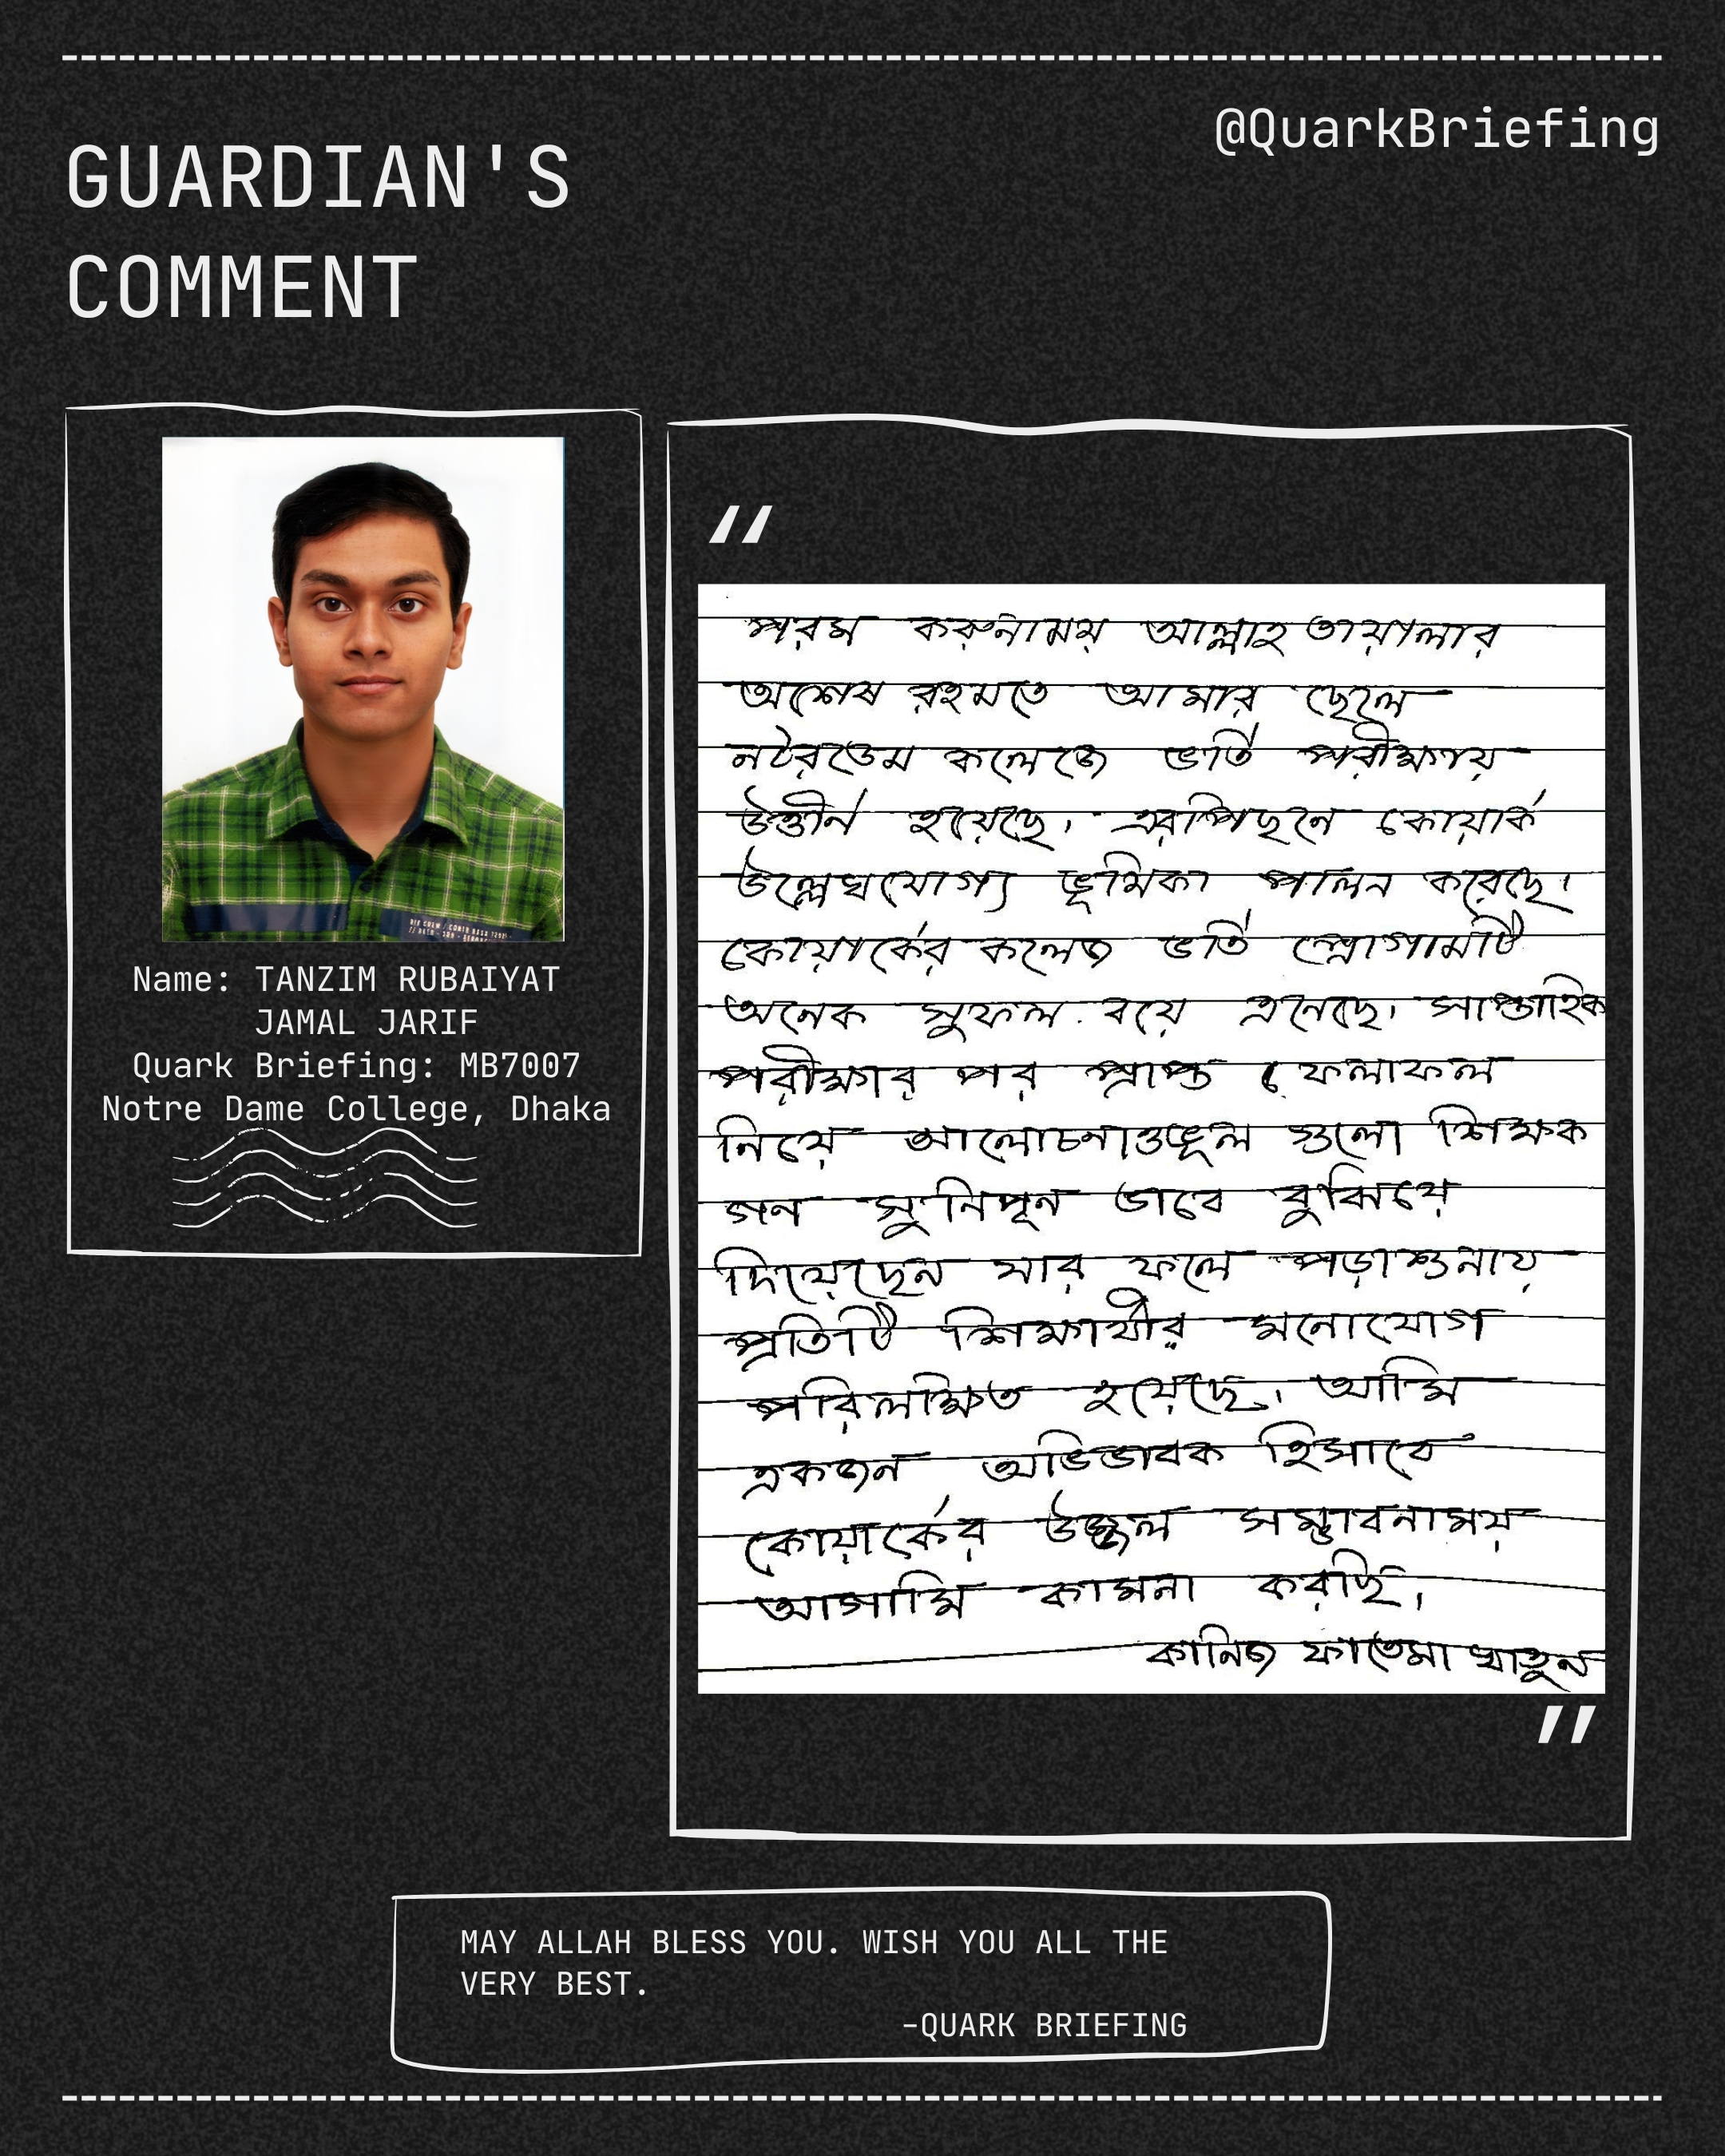 @QuarkBriefing
GUARDIAN'S
COMMENT
Name: TANZIM RUBAIYAT
JAMAL JARIF
Quark Briefing: MB7007
Notre Dame College, Dhaka
"
পরম করুনাময় আল্লাহ তায়ালার
অশেষ রহমতে আমার ছেলে
নটরডেম কলেজে ভর্তি পরীক্ষায়
উত্তীর্ন হয়েছে। এর পিছনে কোয়ার্ক
উল্লেখযোগ্য ভূমিকা পালন করেছে।
কোয়ার্কের কলেজ ভর্তি প্রোগামটি
অনেক সুফল বয়ে এনেছে। সাপ্তাহিক
পরীক্ষার পর প্রাপ্ত ফলাফল
নিয়ে আলোচনা ও ভূল গুলো শিক্ষক
গন সুনিপূন ভাবে বুঝিয়ে
দিয়েছেন যার ফলে পড়াশুনায়
প্রতিটি শিক্ষার্থীর মনোযোগ
পরিলক্ষিত হয়েছে। আমি
একজন অভিভাবক হিসাবে
কোয়ার্কের উজ্জ্বল সম্ভাবনাময়
আগামি কামনা করছি।
কানিজ ফাতেমা খাতুন
"
MAY ALLAH BLESS YOU. WISH YOU ALL THE
VERY BEST.
-QUARK BRIEFING